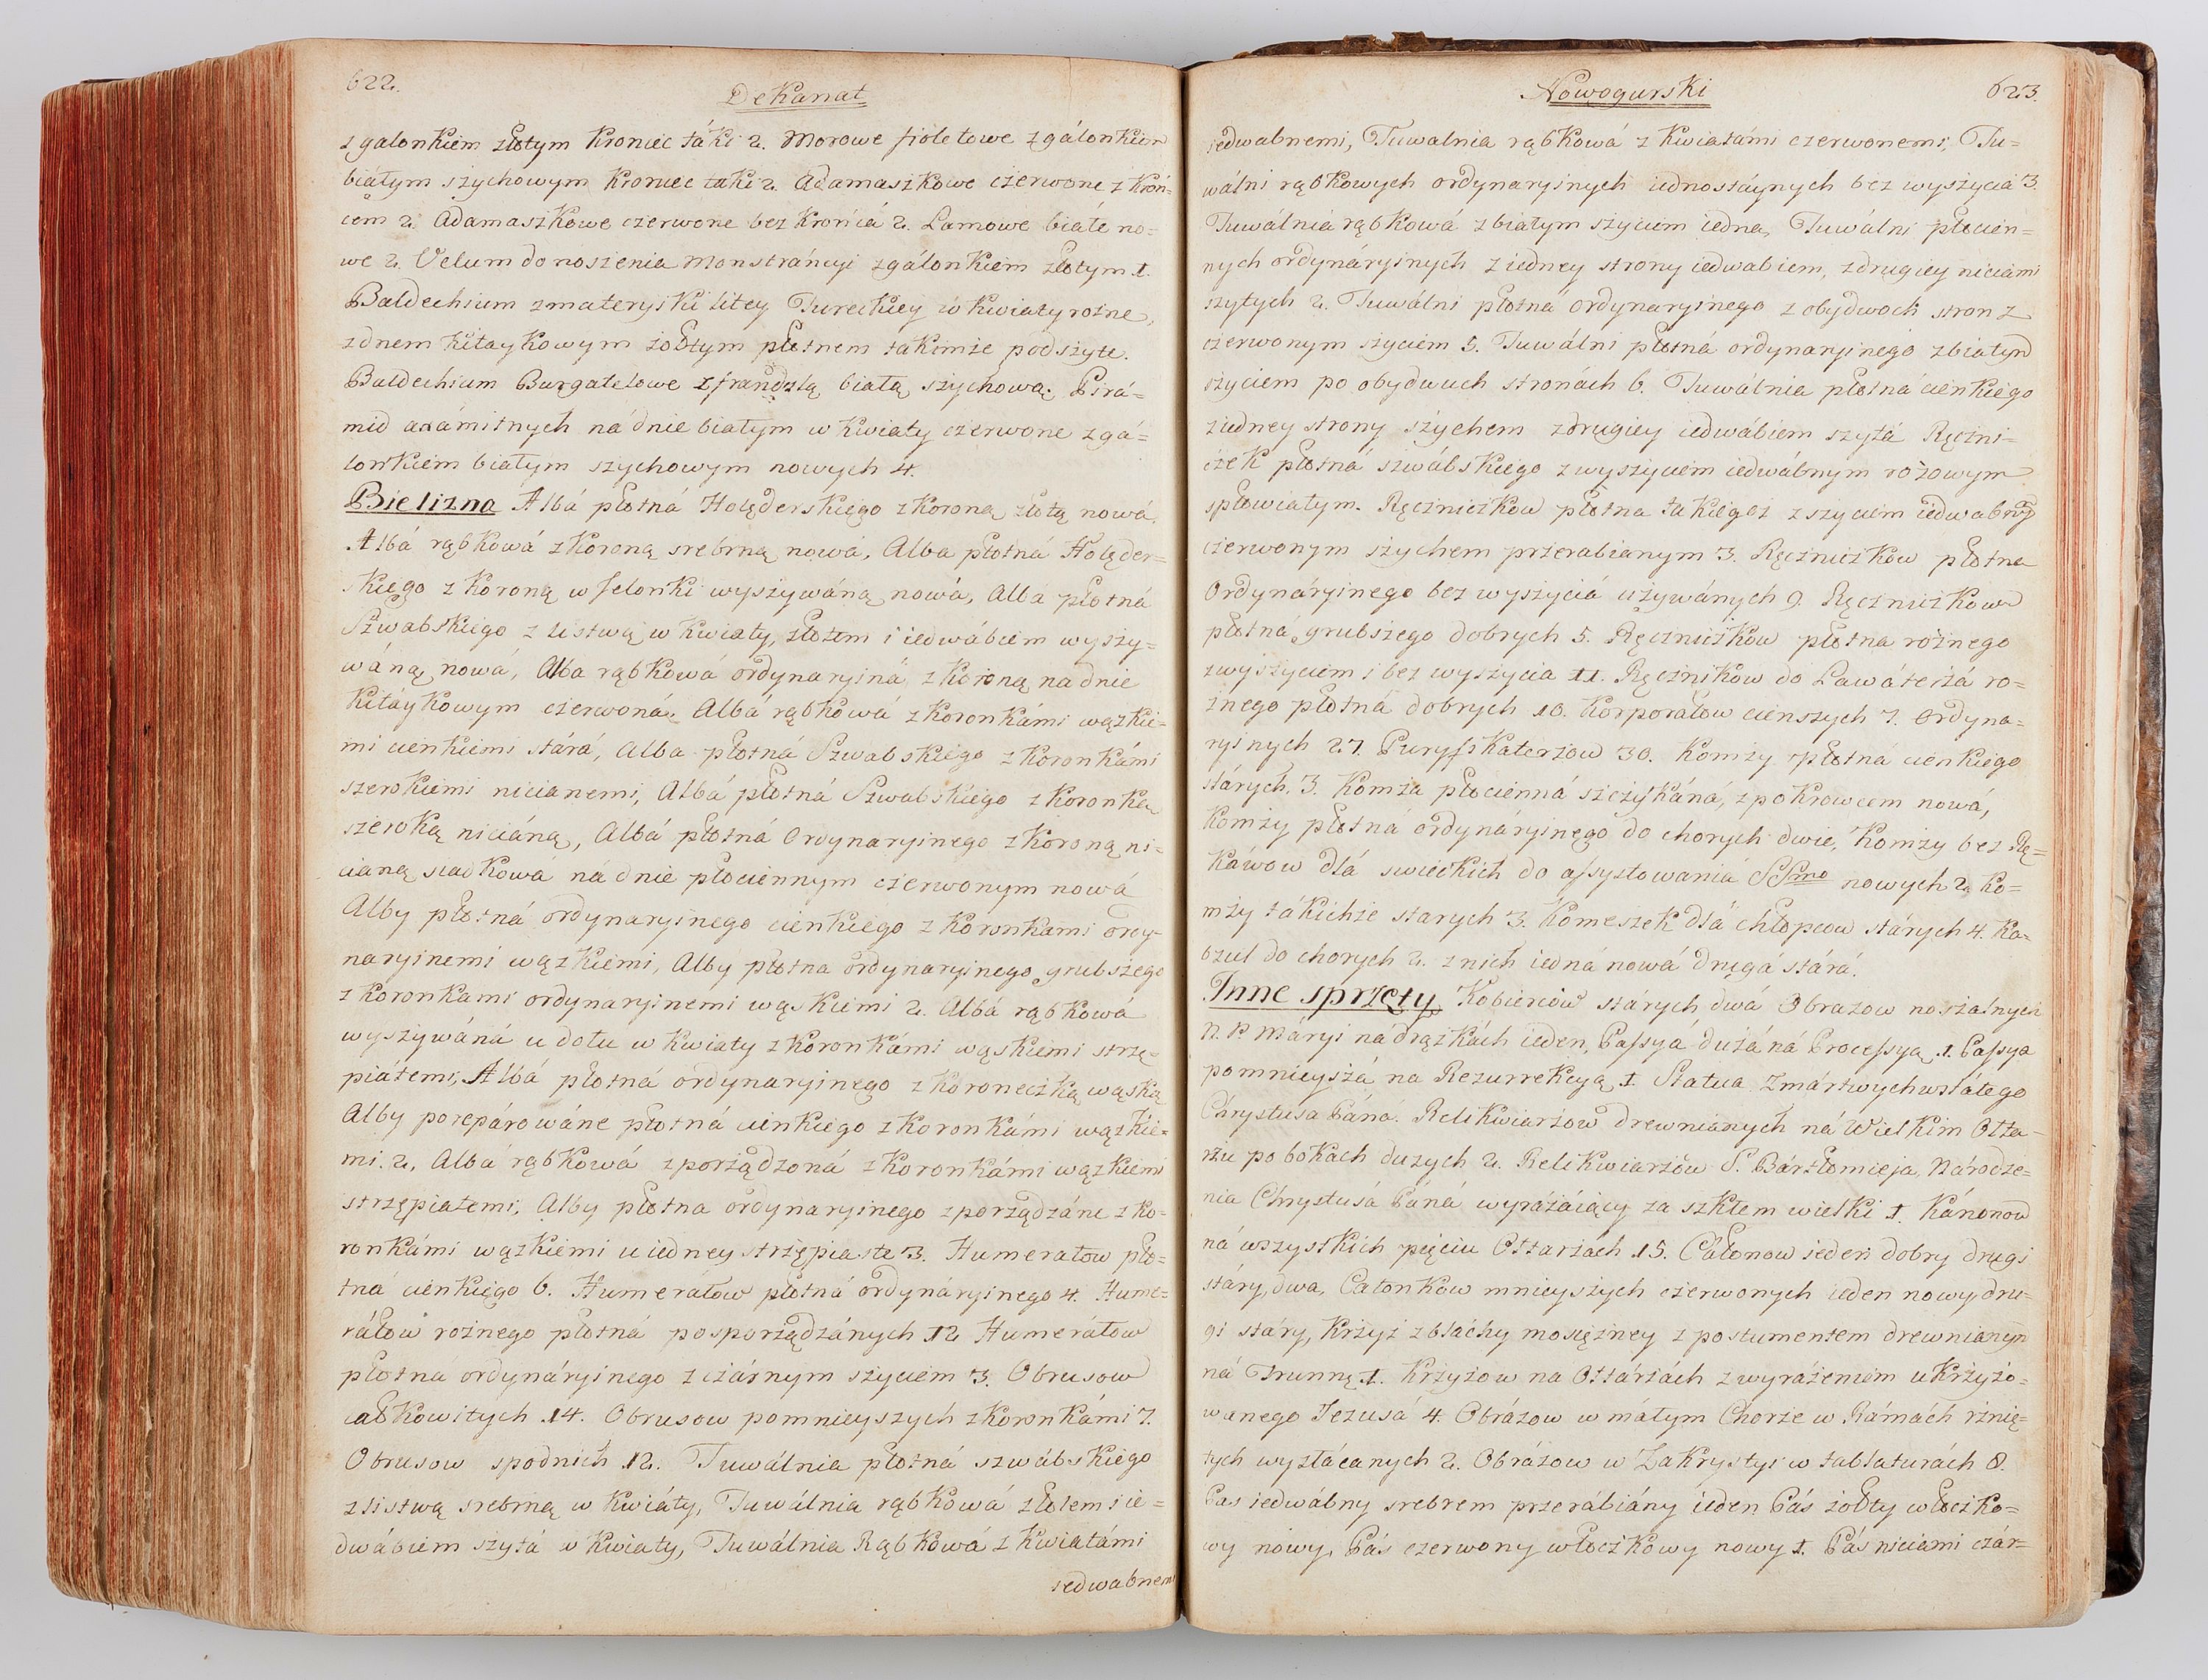 622.
Dekanat
z galonkiem złotym kroniec táki 2. Morowe fioletowe z gálonkiem
białym szychowym kroniec taki 2. Adamaszkowe czerwone z kroń-
cem 2. Adamaszkowe czerwone bez krońcá 2. Lamowe białe no=
we 2. Velum do noszenia Monstráncyi z gálonkiem złotym 1.
Baldechium z materyiki litey Tureckiey w kwiaty rożne,
z dnem kitaykowym żołtym płotnem takimże podszyte.
Baldechium Burgatelowe z frandzlą białą szychową. Pirá=
mid axámitnych ná dnie białym w kwiaty czerwone z gá=
lonkiem białym szychowym nowych 4.
Bielizna Albá płotná Holęderskiego z koroną złotą nowá.
Albá rąbkowá z koroną srebrną nowá, Alba płotná Holęder=
skiego z koroną w felonki wyszywáną nowá, Alba płotná
Szwabskiego z listwą w kwiaty, złotem i iedwábiem wyszy=
wáną nowá, Alba rąbkowá ordynaryiná z koroną na dnie
kitáykowym czerwoná. Albá rąbkowá z koronkámi wązkie=
mi cienkiemi stárá, Alba płotná Szwabskiego z koronkámi
szerokiemi nicianemi, Albá płotná Szwabskiego z koronką
szeroką niciáną, Albá płotná Ordynaryinego z koroną ni=
cianą siadkowá ná dnie płociennym czerwonym nowá
Alby płotná ordynaryinego cienkiego z koronkami ordy-
naryinemi wązkiemi, Alby płotna ordynaryinego grubszego
z koronkami ordynaryinemi wąskiemi 2. Albá rąbkowá
wyszywáná u dołu w kwiaty z koronkámi wąskiemi strzę=
piátemi, Albá płotná ordynaryinego z koroneczką wąską
Alby poreparowáne płotná cienkiego z koronkámi wązkie=
mi. 2. Albá rąbkowá zporządzoná z koronkámi wązkiemi
strzępiatemi, Alby płotna ordynaryinego zporządzáne z ko=
ronkámi wązkiemi u iedney strzępiaste 3. Humerałow pło=
tná cienkiego 6. Humerałow płotná ordynáryinego 4. Hume=
ráłow rożnego płotná posporządzánych 12 Humerałow
płotná ordynáryinego z czárnym szyciem 3. Obrusow
całkowitych 14. Obrusow pomnieyszych z koronkámi 7.
Obrusow spodnich 12. Tuwálnia płotná szwábskiego
z listwą srebrną w kwiáty, Tuwálnia rąbkowá złotem i ie=
dwábiem szytá w kwiaty, Tuwálnia Rąbkowá z kwiatámi
iedwabnemi
Nowogurski
623.
iedwabnemi, Tuwalnia rąbkowá z kwiatámi czerwonemi, Tu=
wálni rąbkowych ordynaryinych iednostáynych bez wyszycia 3.
Tuwálnia rąbkowá z białym szyciem iedna, Tuwálni płocien=
nych ordynáryinych z iedney strony iedwabiem, z drugiey niciámi
szytych 2. Tuwálni płotná ordynaryinego z obydwoch stron z
czerwonym szyciem 5. Tuwálni płotná ordynaryinego z białym
szyciem po obydwuch stronách 6. Tuwálnia płotná cienkiego
z iedney strony szychem z drugiey iedwábiem szytá Ręczni=
czek płotná szwábskiego z wyszyciem iedwábnym rożowym
spłowiałym. Ręczniczkow płotna takiegoż z szyciem iedwabnym
czerwonym szychem przerabianym 3. Ręczniczkow płotna
Ordynáryinego bez wyszyciá używánych 9. Ręczniczkow
płotná grubszego dobrych 5. Ręczniczkow płotna rożnego
z wyszyciem i bez wyszycia 11. Ręcznikow do Lawáterzá ro=
żnego płotná dobrych 10. Korporałow cienszych 7. Ordyna=
ryinych 27. Puryfikaterzow 30. Komży płotná cienkiego
stárych. 3. Komża płocienná szczykáná, z pokrowcem nowá,
Komży płotná ordynáryinego do chorych dwie, Komży bez Rę=
káwow dlá swieckich do assystowania SSmo nowych 2. Ko=
mży tákichże starych 3. Komeszek dlá chłopcow stárych 4. Ka=
bzul do chorych 2. z nich iedná nowá drugá stárá.
Inne sprzęty Kobiercow stárych dwá Obrazow noszalnych
N. P. Maryi ná drązkách ieden, Passyá dużá ná Processyą 1. Passya
pomnieyszá na Rezurrekcyą 1. Statua Zmártwychwstáłego
Chrystusa Páná. Relikwiarzow drewnianych ná Wielkim Ołta-
rzu po bokach dużych 2. Relikwiarzow S. Bártłomieja, Národze=
nia Chrystusá Páná wyráżáiący za szkłem wielki 1. Kánonow
ná wszystkich pięciu Ołtarzách 15. Całonow ieden dobry drugi
stáry, dwa, Całonkow mnieyszych czerwonych ieden nowy dru=
gi stáry, Krzyż z bláchy mosiężney z postumentem drewnianym
ná Trumnę 1. Krzyżow na Ołtárzách z wyráżeniem ukrzyżo=
wanego Jezusá 4. Obrázow w máłym Chorze w Rámách rznię=
tych wyzłácanych 2. Obrázow w Zakrystyi w tablaturách 8.
Pas iedwábny srebrem przerábiány ieden Pás żołty włoczko=
wy nowy, Pás czerwony włoczkowy nowy 1. Pás niciami czár=